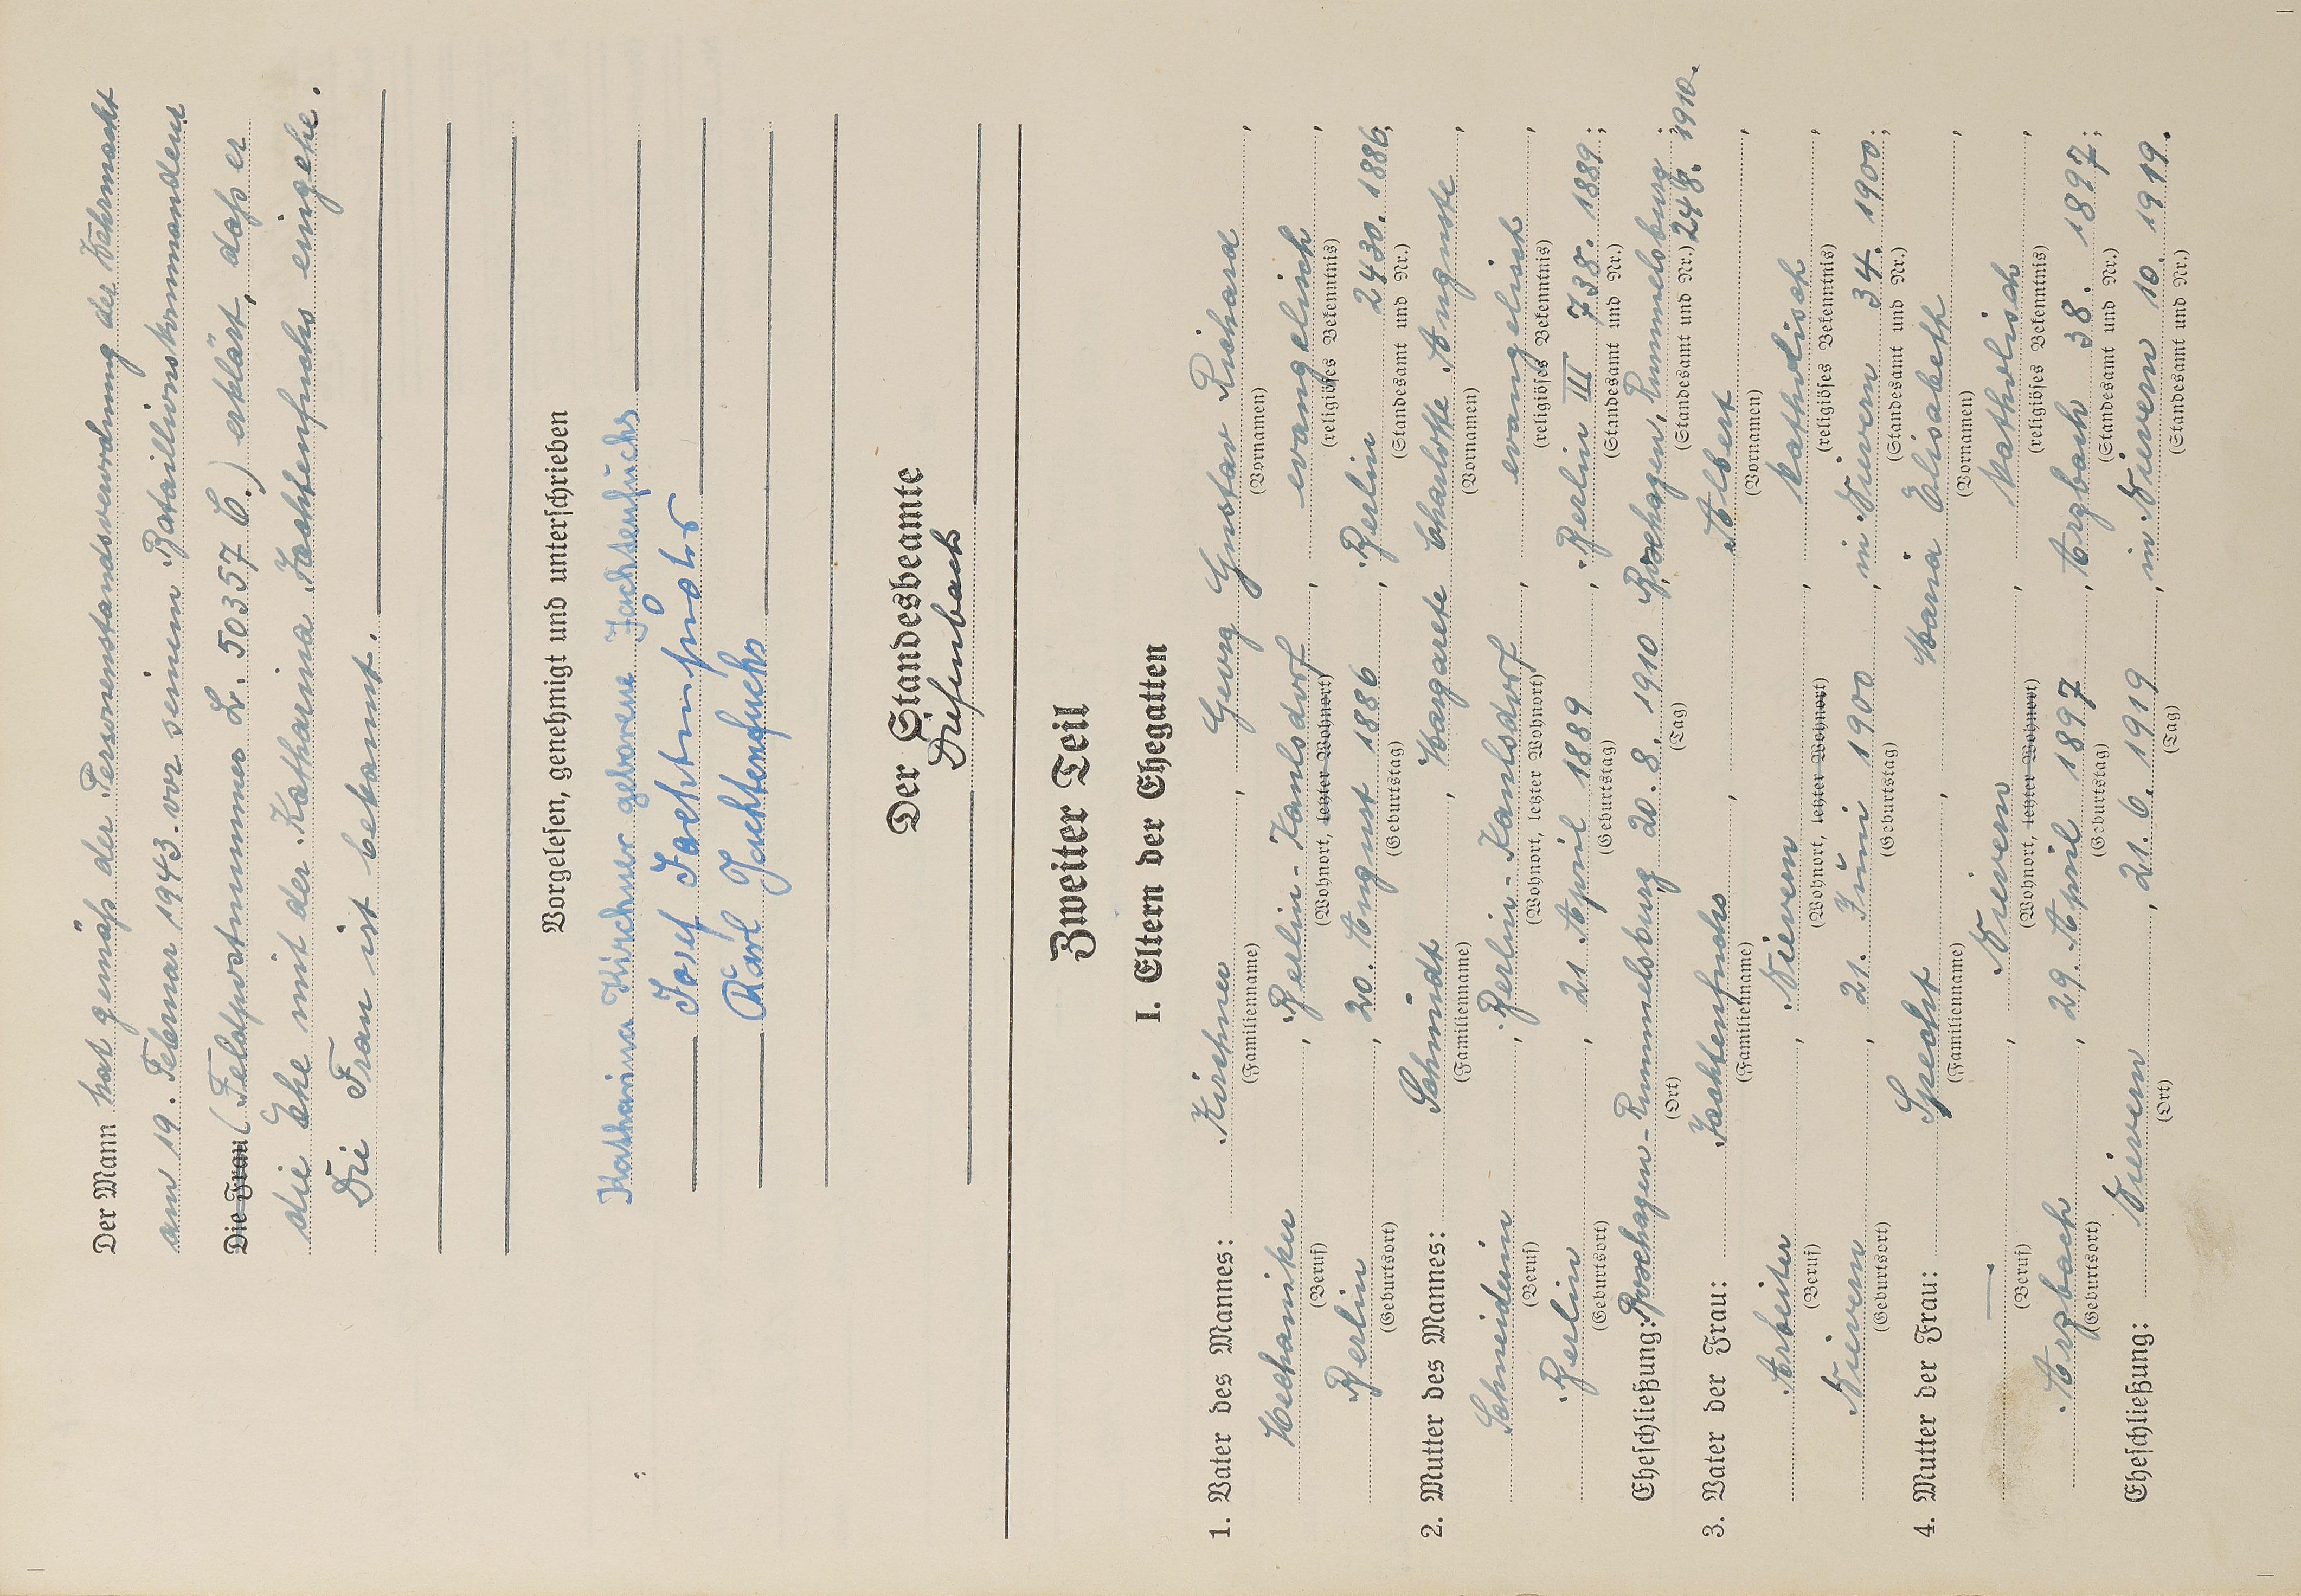 Der Mann hat gemäß der Personenstandsverordnung der Wehrmacht
am 19. Februar 1943. vor seinem Bataillionskommandeur
Die Frau (Feldpostnummer L. 50357 C.) erklärt, daß er
die Ehe mit der Katharina Jachtenfuchs eingehe.
Die Frau ist bekannt.
Vorgelesen, genehmigt und unterschrieben
Katharina Kirchner geborene Jachtenfuchs
Josef Jachtenfuchs
Karl Jachtenfuchs
Der Standesbeamte
Diefenbach
Zweiter Teil
I. Eltern der Ehegatten
1. Vater des Mannes: Kirchner, Georg Gustav Richard,
(Familienname) (Vornamen)
Mechaniker, Berlin-Kaulsdorf, evangelisch,
(Beruf) (Wohnort, letzter Wohnort) (religiöses Bekenntnis)
Berlin, 20. August 1886, Berlin 2430. 1886;
(Geburtsort) (Geburtstag) (Standesamt und Nr.)
2. Mutter des Mannes: Schmidt, Margarete Charlotte Auguste,
(Familienname) (Vornamen)
Schneiderin, Berlin-Kaulsdorf, evangelisch,
(Beruf) (Wohnort, letzter Wohnort) (religiöses Bekenntnis)
Berlin, 21. April 1889, Berlin III 738. 1889;
(Geburtsort) (Geburtstag) (Standesamt und Nr.)
Eheschließung: Boxhagen-Rummelsburg, 20.8.1910, Boxhagen, Rummelsburg; 248. 1910.
(Ort) (Tag) (Standesamt und Nr.)
3. Vater der Frau: Jachtenfuchs, Albert,
(Familienname) (Vornamen)
Arbeiter, Nievern, katholisch,
(Beruf) (Wohnort, letzter Wohnort) (religiöses Bekenntnis)
Nievern, 21. Juni 1900, in Nievern 34. 1900;
(Geburtsort) (Geburtstag) (Standesamt und Nr.)
4. Mutter der Frau: Specht, Maria Elisabeth,
(Familienname) (Vornamen)
—, Nievern, katholisch,
(Beruf) (Wohnort, letzter Wohnort) (religiöses Bekenntnis)
Arzbach, 29. April 1897, Arzbach 38. 1897;
(Geburtsort) (Geburtstag) (Standesamt und Nr.)
Eheschließung: Nievern, 21.6.1919, in Nievern 10. 1919.
(Ort) (Tag) (Standesamt und Nr.)